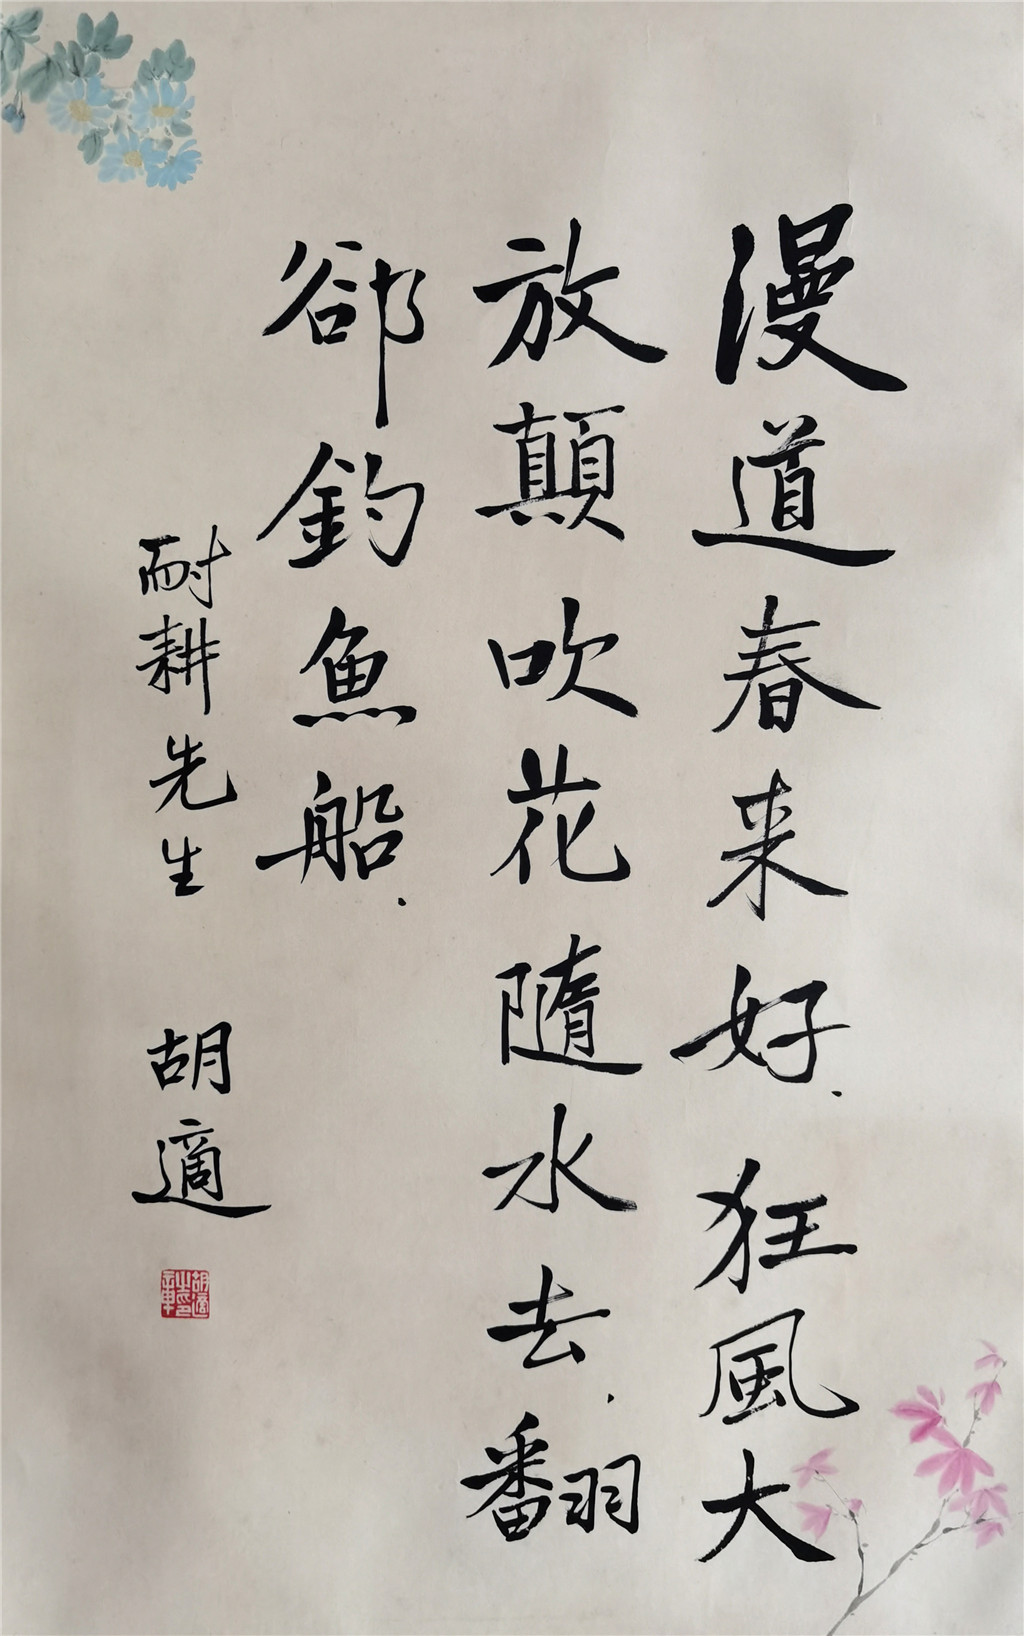 漫道春来好.狂風大
放顛吹花隨水去.翻
郤釣魚船.
耐耕先生 胡適
胡適之印章